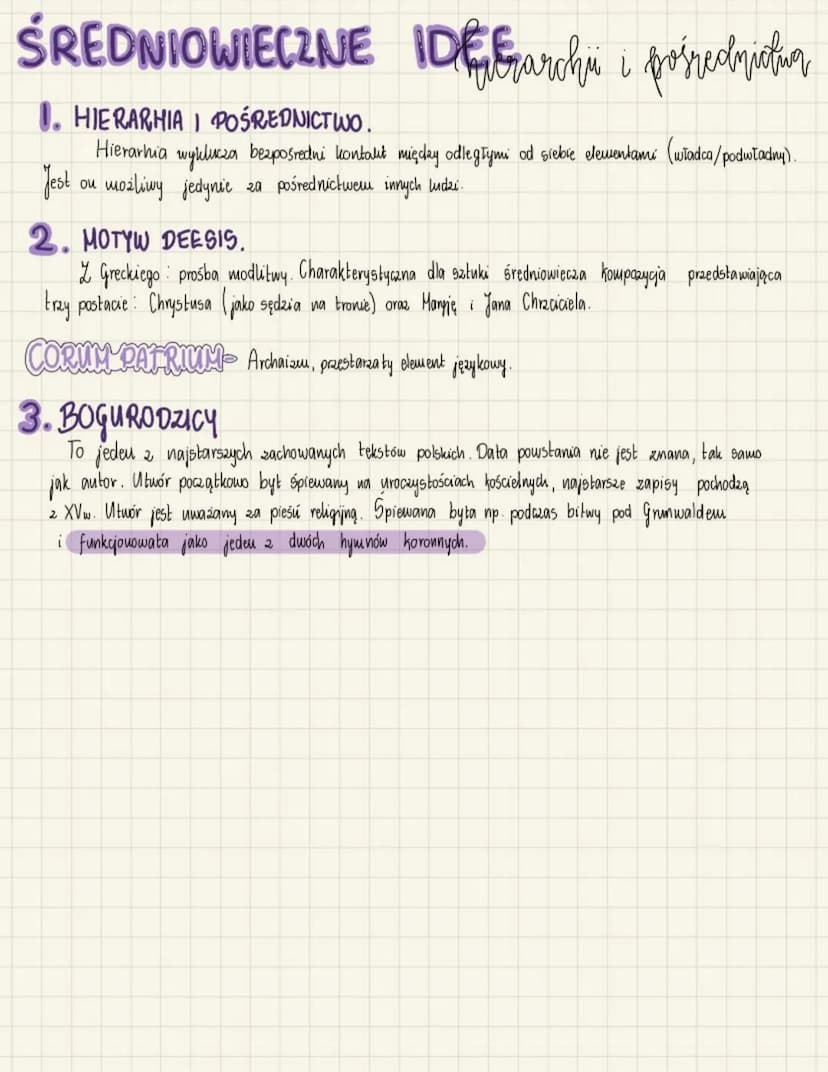 ŚREDNIOWIECZNE IDEE hierarchii i pośrednictwa
1. HIERARHIA I POŚREDNICTWO.
Hierarhia wyklucza bezpośredni kontakt między odległymi od siebie elementami (władca/podwładny).
Jest on możliwy jedynie za pośrednictwem innych ludzi.
2. MOTYW DEESIS.
Z Greckiego: prośba modlitwy. Charakterystyczna dla sztuki średniowiecza kompozycja przedstawiająca
trzy postacie: Chrystusa (jako sędzia na tronie) oraz Maryję i Jana Chrzciciela.
CORUM PATRIUM- Archaizm, przestarzały element językowy.
3. BOGURODZICY
To jeden z najstarszych zachowanych tekstów polskich. Data powstania nie jest znana, tak samo
jak autor. Utwór początkowo był śpiewany na uroczystościach kościelnych, najstarsze zapisy pochodzą
z XVw. Utwór jest uważany za pieśń religijną. Śpiewana była np. podczas bitwy pod Grunwaldem
i funkcjonowała jako jeden z dwóch hymnów koronnych.